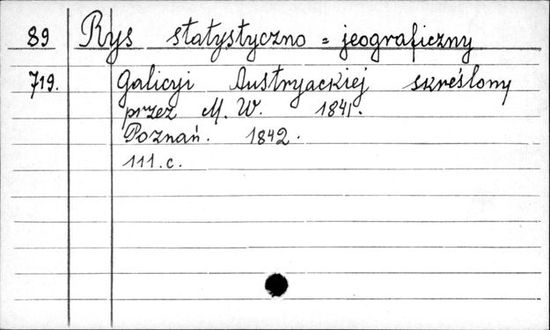 89 Rys statystyczno = jeograficzny
719. Galicyi Austryackiej skreślony
przez M. W. 1841.
Poznań. 1842.
111.c.